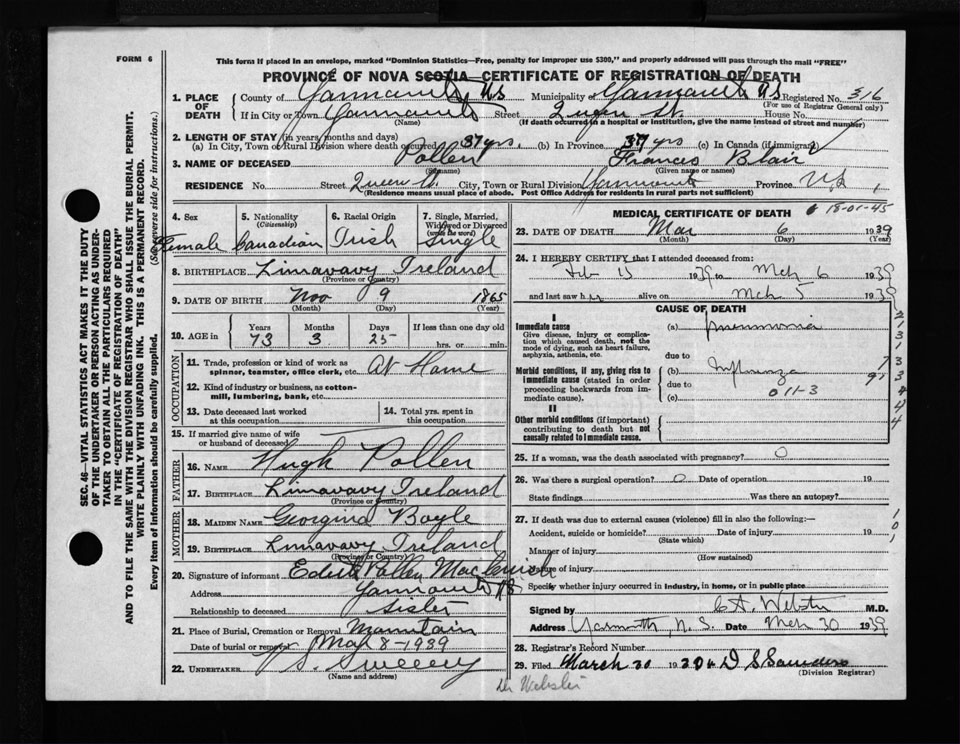 FORM 6
This form if placed in an envelope, marked "Dominion Statistics—Free, penalty for improper use $300," and properly addressed will pass through the mail "FREE"
PROVINCE OF NOVA SCOTIA—CERTIFICATE OF REGISTRATION OF DEATH
1. PLACE OF DEATH County of Yarmouth, N S (Name) Municipality of Yarmouth N S Registered No. 316 (For use of Registrar General only)
If in City or Town Yarmouth Street Queen St. House No.
(If death occurred in a hospital or institution, give the name instead of street and number)
2. LENGTH OF STAY (in years, months and days)
(a) In City, Town or Rural Division where death occurred 37 yrs. (b) In Province 37 yrs (c) In Canada (if immigrant)
3. NAME OF DECEASED Pollen Frances Blair
(Surname) (Given name or names)
RESIDENCE No. Street Queen St. City, Town or Rural Division Yarmouth Province N.S.
(Residence means usual place of abode. Post Office Address for residents in rural parts not sufficient)
SEC. 46—VITAL STATISTICS ACT MAKES IT THE DUTY
OF THE UNDERTAKER OR PERSON ACTING AS UNDER-
TAKER TO OBTAIN ALL THE PARTICULARS REQUIRED
IN THE "CERTIFICATE OF REGISTRATION OF DEATH"
AND TO FILE THE SAME WITH THE DIVISION REGISTRAR WHO SHALL ISSUE THE BURIAL PERMIT.
WRITE PLAINLY WITH UNFADING INK. THIS IS A PERMANENT RECORD.
Every item of information should be carefully supplied. (See reverse side for instructions.)
4. Sex 5. Nationality (Citizenship) 6. Racial Origin 7. Single, Married, Widowed or Divorced (write the word)
Female Canadian Irish Single
8. BIRTHPLACE Limavavy Ireland
(Province or Country)
9. DATE OF BIRTH Nov 9 1865
(Month) (Day) (Year)
10. AGE in Years Months Days If less than one day old
73 3 25 hrs. or min.
OCCUPATION
11. Trade, profession or kind of work as spinner, teamster, office clerk, etc. At Home
12. Kind of industry or business, as cotton-mill, lumbering, bank, etc.
13. Date deceased last worked at this occupation
14. Total yrs. spent in this occupation
15. If married give name of wife or husband of deceased
FATHER
16. NAME Hugh Pollen
17. BIRTHPLACE Limavavy Ireland
(Province or Country)
MOTHER
18. MAIDEN NAME Georgina Boyle
19. BIRTHPLACE Limavavy Ireland
(Province or Country)
20. Signature of informant Edith Pollen
Address Yarmouth N S
Relationship to deceased Sister
21. Place of Burial, Cremation or Removal Mountain
Date of burial or removal Mar 8-1939
22. UNDERTAKER Sweeny
(Name and address)
MEDICAL CERTIFICATE OF DEATH 18-01-45
23. DATE OF DEATH Mar 6 1939
(Month) (Day) (Year)
24. I HEREBY CERTIFY that I attended deceased from:
Feb 15 1939 to Mch 6 1939
and last saw her alive on Mch 5 1939
CAUSE OF DEATH
I
Immediate cause (a) pneumonia
Give disease, injury or complication which caused death, not the mode of dying, such as heart failure, asphyxia, asthenia, etc.
due to
Morbid conditions, if any, giving rise to immediate cause (stated in order proceeding backwards from immediate cause). (b) Influenza
due to 011-3
(c)
II
Other morbid conditions (if important) contributing to death but not causally related to immediate cause.
25. If a woman, was the death associated with pregnancy? 0
26. Was there a surgical operation? 0 Date of operation 19
State findings Was there an autopsy?
27. If death was due to external causes (violence) fill in also the following:—
Accident, suicide or homicide? Date of injury 19
(State which)
Manner of injury
(How sustained)
Nature of injury
Specify whether injury occurred in industry, in home, or in public place
Signed by C A. Webster M.D.
Address Yarmouth, N.S. Date Mch 30 1939
28. Registrar's Record Number
29. Filed March 30 1939 D S Saunders
(Division Registrar)
Dr Webster